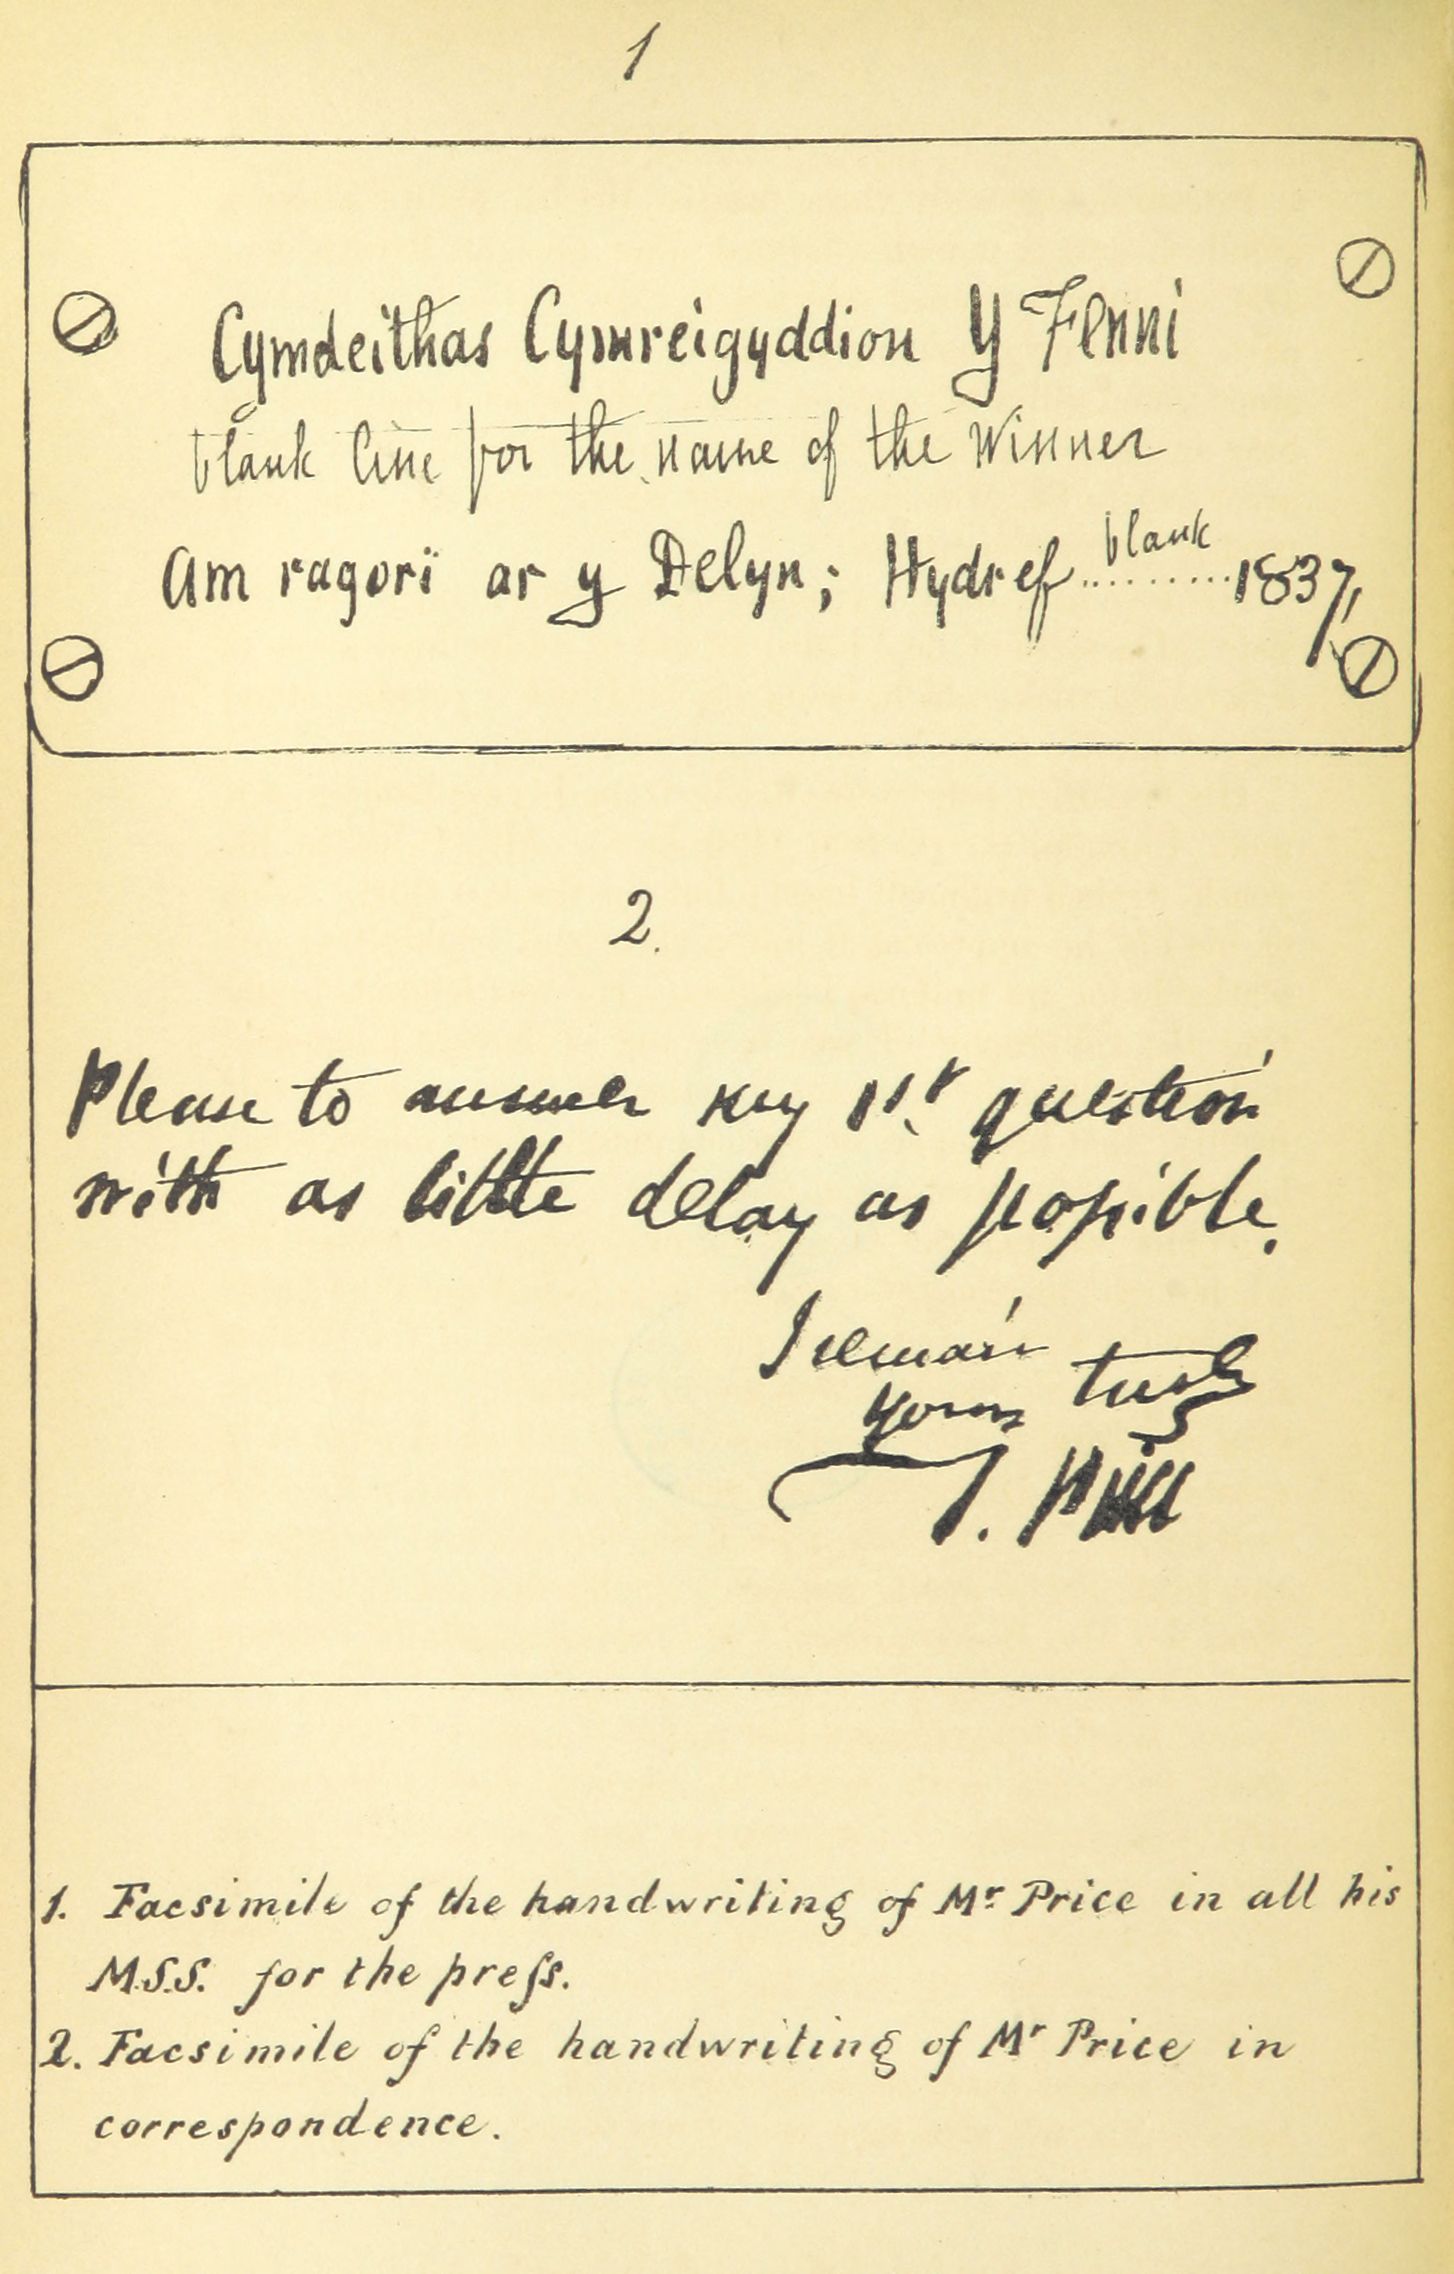 1
Cymdeithas Cymreigyddion Y Fenni
blank line for the name of the Winner
blank
Am ragorï ar y Delyn; Hydref ......... 1837,
2.
Please to answer my 1st question
with as little delay as poſsible.
I remain
yours truly
T. Price
1. Facsimile of the handwriting of Mr Price in all his
M.S.S. for the preſs.
2. Facsimile of the handwriting of Mr Price in
correspondence.